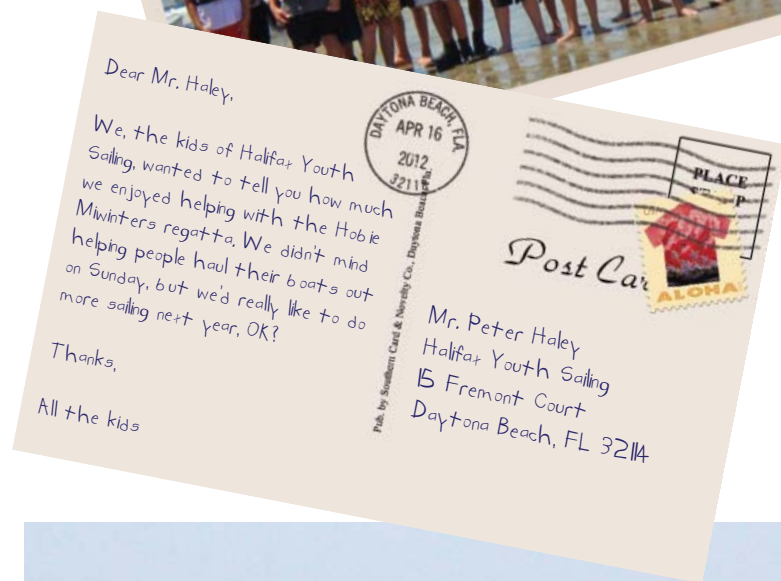 Dear Mr. Haley,
We, the kids of Halifax Youth
Sailing, wanted to tell you how much
we enjoyed helping with the Hobie
Miwinters regatta. We didn't mind
helping people haul their boats out
on Sunday, but we'd really like to do
more sailing next year, OK?
Thanks,
All the kids
DAYTONA BEACH, FLA.
APR 16
2012
3211
Pub. by Southern Card & Novelty Co., Daytona Beach, Fla.
PLACE
Post
ALOHA
Mr. Peter Haley
Halifax Youth Sailing
15 Fremont Court
Daytona Beach, FL 32114